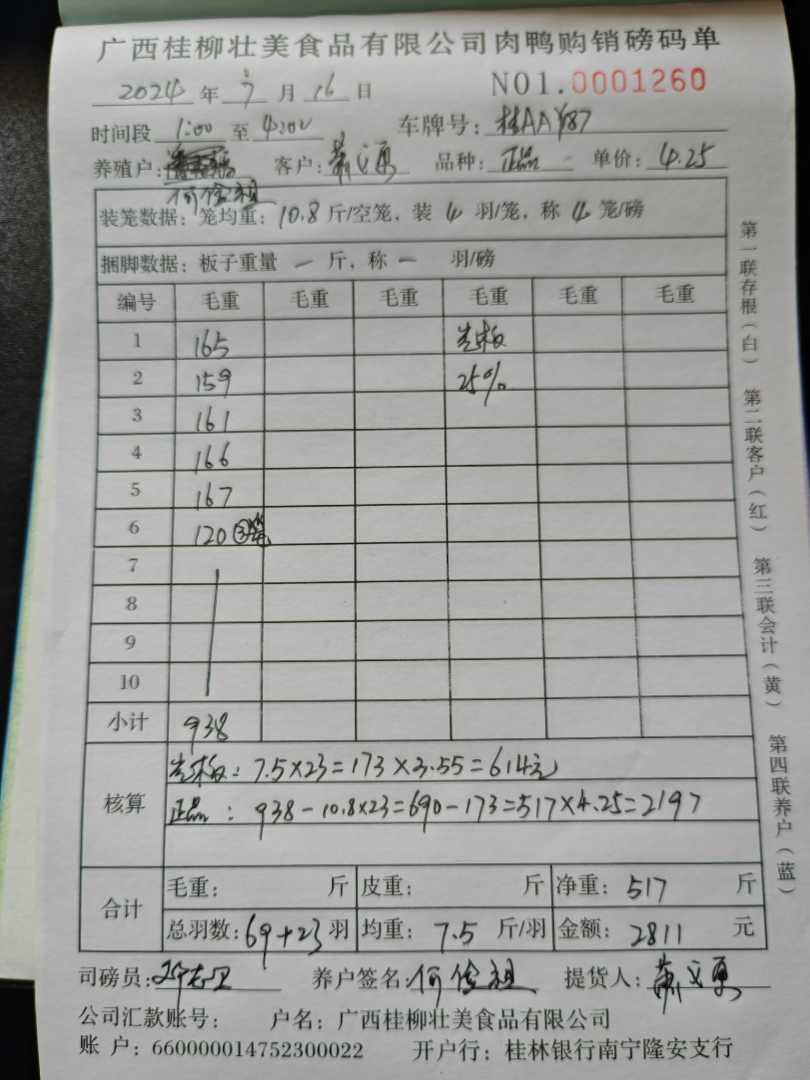 广西桂柳壮美食品有限公司肉鸭购销磅码单
2024 年 7 月 16 日 NO1.0001260
时间段 1:00 至 4:00 车牌号: 桂AA
养殖户: 客户: 品种: 正品 单价: 4.25
何俭祖
装笼数据: 笼均重: 10.8 斤/空笼, 装 4 羽/笼, 称 4 笼/磅
捆脚数据: 板子重量 一 斤, 称 一 羽/磅
编号 毛重 毛重 毛重 毛重 毛重 毛重
1 165 老板
2 159 25%
3 161
4 166
5 167
6 120 ③笼
7
8
9
10
小计 938
核算
: 7.5×23=173×3.55=614元
正品: 938-10.8×23=690-173=517×4.25=2197
合计
毛重: 斤 皮重: 斤 净重: 517 斤
总羽数: 69+23 羽 均重: 7.5 斤/羽 金额: 2811 元
司磅员: 养户签名: 何俭祖 提货人:
公司汇款账号: 户名: 广西桂柳壮美食品有限公司
账 户: 660000014752300022 开户行: 桂林银行南宁隆安支行
第一联存根(白) 第二联客户(红) 第三联会计(黄) 第四联养户(蓝)